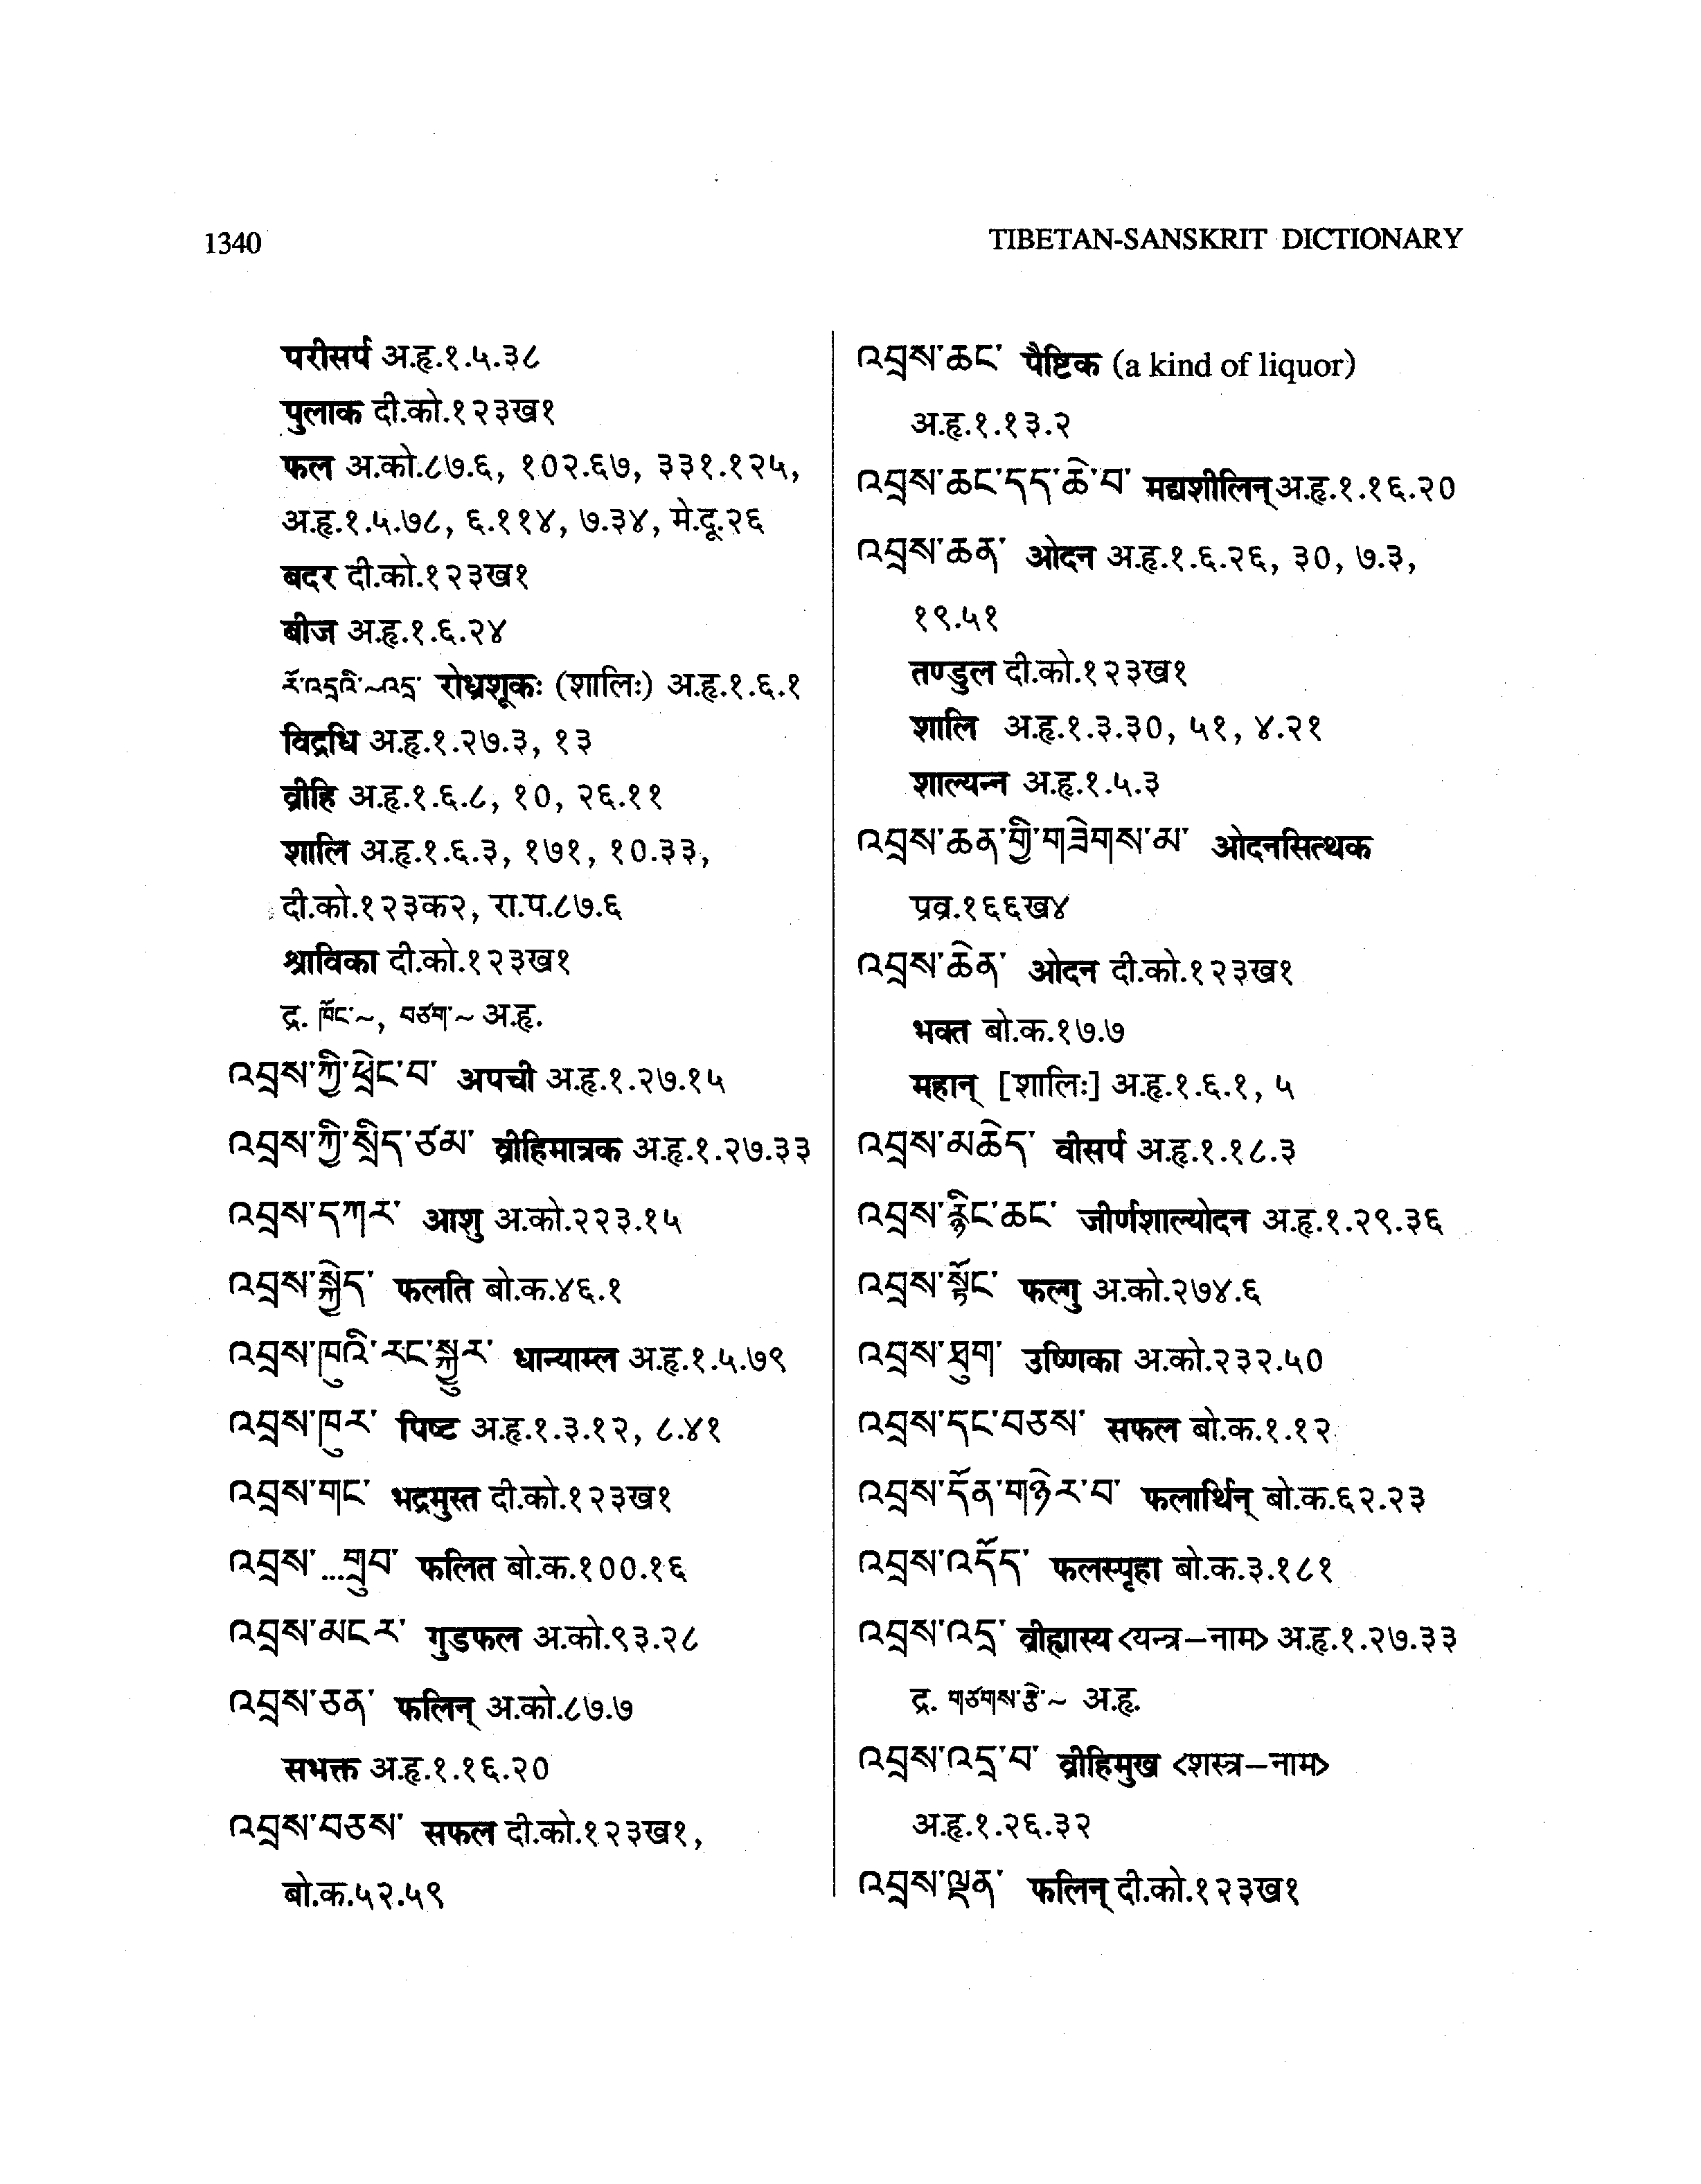 1340
TIBETAN-SANSKRIT DICTIONARY
परीसर्प अ.हृ.१.५.३८
पुलाक दी.को.१२३ख१
फल अ.को.८७.६, १०२.६७, ३३१.१२५,
अ.हृ.१.५.७८, ६.११४, ७.३४, मे.दू.२६
बदर दी.को.१२३ख१
बीज अ.हृ.१.६.२४
རོ་འདྲའི་~འདྲ་ रोध्रशूकः (शालिः) अ.हृ.१.६.१
विद्रधि अ.हृ.१.२७.३, १३
व्रीहि अ.हृ.१.६.८, १०, २६.११
शालि अ.हृ.१.६.३, १७१, १०.३३,
दी.को.१२३क२, रा.प.८७.६
श्राविका दी.को.१२३ख१
द्र. ཁོང་~, བཙག་~ अ.हृ.
འབྲས་ཀྱི་ཕྲེང་བ་ अपची अ.हृ.१.२७.१५
འབྲས་ཀྱི་སྲིད་ཙམ་ व्रीहिमात्रक अ.हृ.१.२७.३३
འབྲས་དཀར་ आशु अ.को.२२३.१५
འབྲས་སྐྱེད་ फलति बो.क.४६.१
འབྲས་ཁུའི་རང་སྐྱུར་ धान्याम्ल अ.हृ.१.५.७९
འབྲས་ཁུར་ पिष्ट अ.हृ.१.३.१२, ८.४१
འབྲས་གང་ भद्रमुस्त दी.को.१२३ख१
འབྲས་...གྲུབ་ फलित बो.क.१००.१६
འབྲས་མངར་ गुडफल अ.को.९३.२८
འབྲས་ཅན་ फलिन् अ.को.८७.७
सभक्त अ.हृ.१.१६.२०
འབྲས་བཅས་ सफल दी.को.१२३ख१,
बो.क.५२.५९
འབྲས་ཆང་ पैष्टिक (a kind of liquor)
अ.हृ.१.१३.२
འབྲས་ཆང་དད་ཆེ་བ་ मद्यशीलिन् अ.हृ.१.१६.२०
འབྲས་ཆན་ ओदन अ.हृ.१.६.२६, ३०, ७.३,
१९.५१
तण्डुल दी.को.१२३ख१
शालि अ.हृ.१.३.३०, ५१, ४.२१
शाल्यन्न अ.हृ.१.५.३
འབྲས་ཆན་གྱི་གཟེགས་མ་ ओदनसित्थक
प्रव्र.१६६ख४
འབྲས་ཆེན་ ओदन दी.को.१२३ख१
भक्त बो.क.१७.७
महान् [शालिः] अ.हृ.१.६.१, ५
འབྲས་མཆེད་ वीसर्प अ.हृ.१.१८.३
འབྲས་རྙིང་ཆང་ जीर्णशाल्योदन अ.हृ.१.२९.३६
འབྲས་སྟོང་ फल्गु अ.को.२७४.६
འབྲས་ཐུག་ उष्णिका अ.को.२३२.५०
འབྲས་དང་བཅས་ सफल बो.क.१.१२
འབྲས་དོན་གཉེར་བ་ फलार्थिन् बो.क.६२.२३
འབྲས་འདོད་ फलस्पृहा बो.क.३.१८१
འབྲས་འདྲ་ व्रीह्यास्य <यन्त्र–नाम> अ.हृ.१.२७.३३
द्र. གཙགས་རྩེ་~ अ.हृ.
འབྲས་འདྲ་བ་ व्रीहिमुख <शस्त्र–नाम>
अ.हृ.१.२६.३२
འབྲས་ལྡན་ फलिन् दी.को.१२३ख१